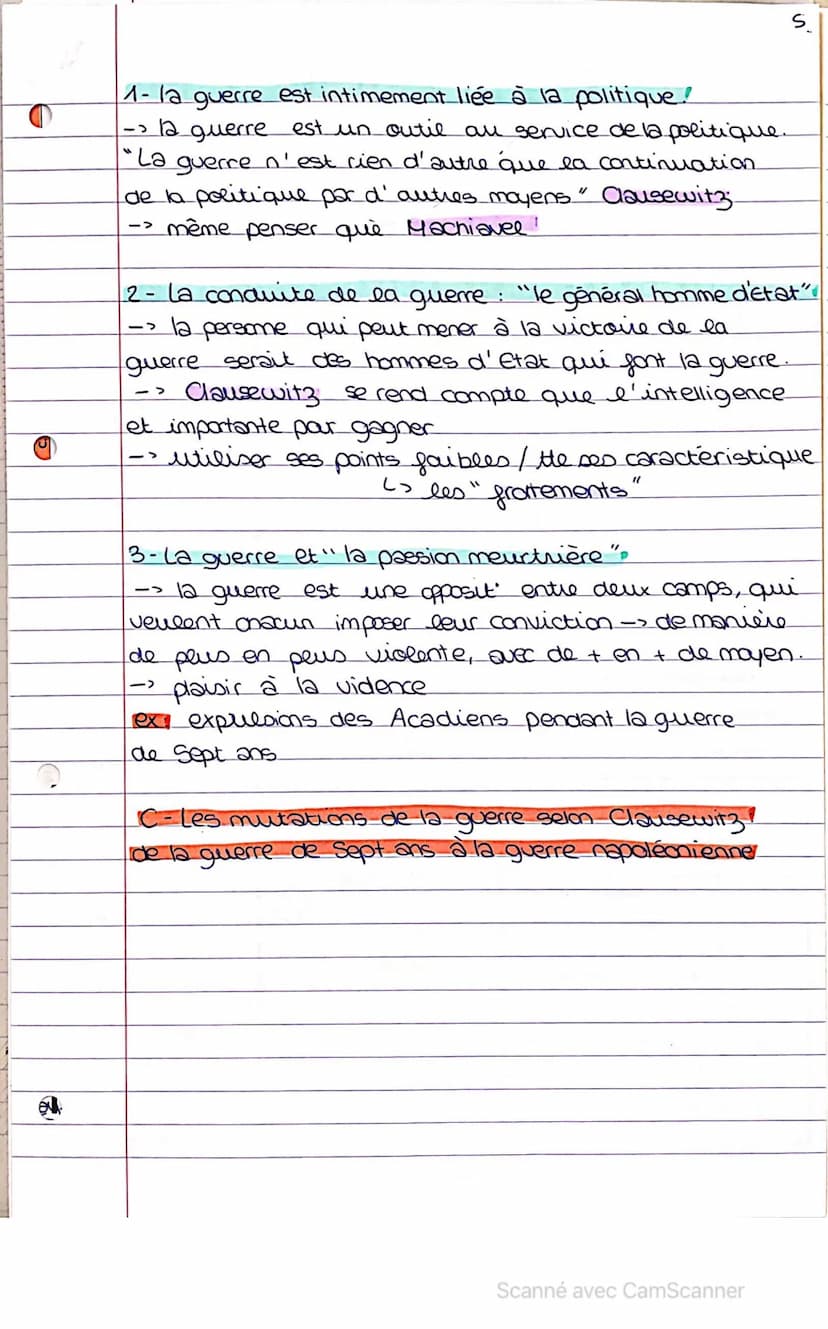 5
1- la guerre est intimement liée à la politique!
-> la guerre est un outie au service de la politique.
"La guerre n'est rien d'autre que la continuation
de la politique par d'autres moyens" Clausewitz
-> même penser que Machiavel
2- la conduite de la guerre : "le général homme d'état"
-> la personne qui peut mener à la victoire de la
guerre serait des hommes d'Etat qui font la guerre.
-> Clausewitz se rend compte que l'intelligence
et importante par gagner
-> utiliser ses points faibles / tte ses caractéristique
↳ les "frottements"
3- la guerre et "la passion meurtrière"
-> la guerre est une opposit° entre deux camps, qui
veulent chacun imposer leur conviction -> de manière
de plus en plus violente, avec de + en + de moyen.
-> plaisir à la violence
ex: expulsions des Acadiens pendant la guerre
de Sept ans
C- Les mutations de la guerre selon Clausewitz
de la guerre de Sept ans à la guerre napoléonienne
Scanné avec CamScanner